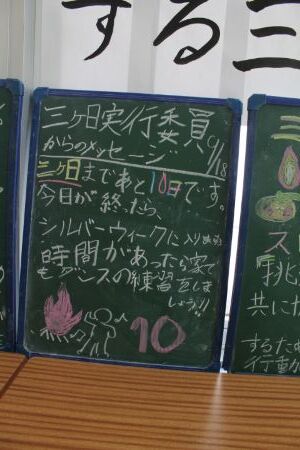 する三
三ヶ日実行委員
からのメッセージ 9/18
三ケ日まであと10日です。
今日が終ったら、
シルバーウィークに入りぬぬ
時間があったら家で
もダンスの練習をしま
しょう!!
10
ス
挑
共に
するため
行動か